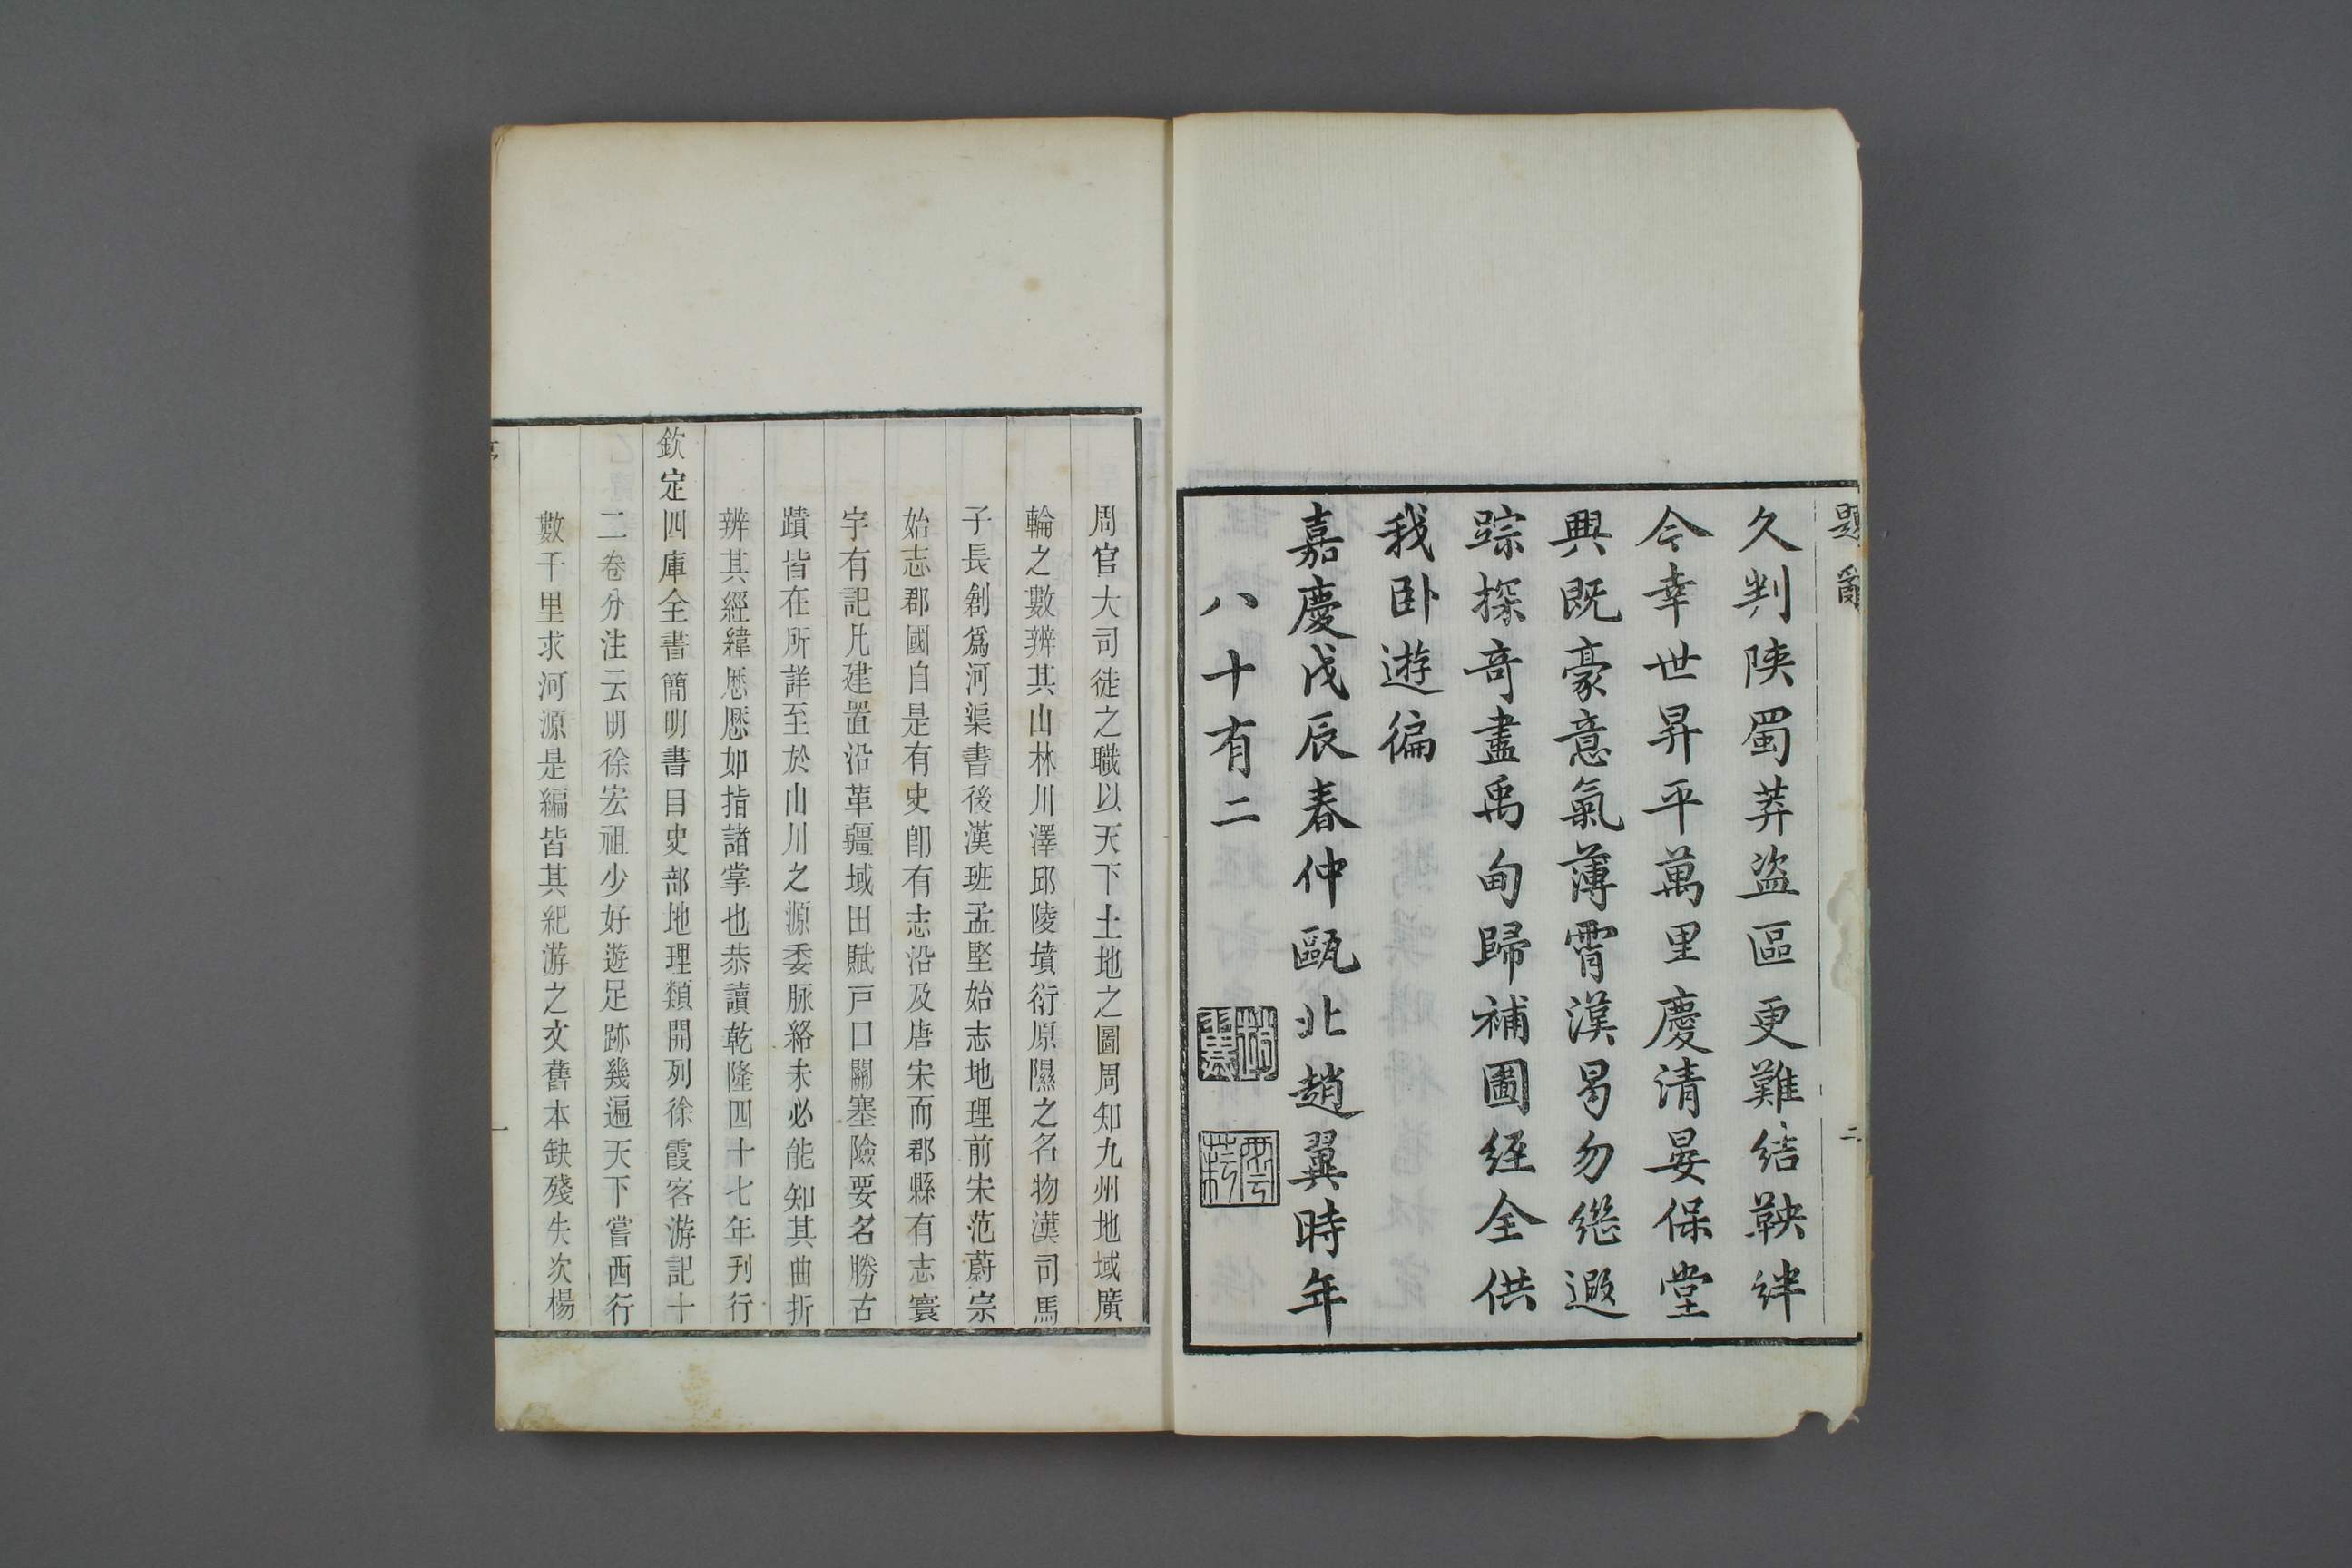 題辭
二
久判陝蜀莽盜區更難結靺絆
今幸世昇平萬里慶清晏保堂
興既豪意氣薄霄漢曷勿繼遐
踪探奇盡禹甸歸補圖經全供
我卧遊徧
嘉慶戊辰春仲甌北趙翼時年
八十有二
趙翼
周官大司徒之職以天下土地之圖周知九州地域廣
輪之數辨其山林川澤邱陵墳衍原隰之名物漢司馬
子長創爲河渠書後漢班孟堅始志地理前宋范蔚宗
始志郡國自是有史卽有志沿及唐宋而郡縣有志寰
宇有記凡建置沿革疆域田賦戸口關塞險要名勝古
蹟皆在所詳至於山川之源委脉絡未必能知其曲折
辨其經緯歷歷如指諸掌也恭讀乾隆四十七年刊行
欽定四庫全書簡明書目史部地理類開列徐霞客游記十
二卷分注云明徐宏祖少好遊足跡幾遍天下嘗西行
數千里求河源是編皆其紀游之文舊本缺殘失次楊
一